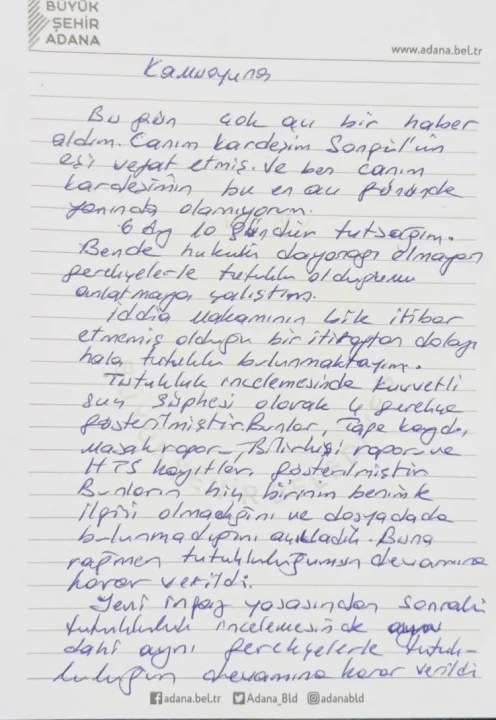 BÜYÜK
ŞEHİR
ADANA
www.adana.bel.tr
Kamuoyuna
Bu gün çok acı bir haber
aldım. Canım kardeşim Songül'ün
eşi vefat etmiş. Ve ben canım
kardeşimin bu en acı gününde
yanında olamıyorum.
6 ay 10 gündür tutsağım.
Bende hukuki dayanağı olmayan
gerekçelerle tutuklu olduğumu
anlatmaya çalıştım.
İddia makamının bile itibar
etmemiş olduğu bir itiraftan dolayı
hala tutuklu bulunmaktayım.
Tutukluk incelemesinde kuvvetli
suç şüphesi olarak 4 gerekçe
gösterilmiştir. Bunlar, Tape kaydı,
Masak rapor, Bilirkişi raporu ve
HTS kayıtları gösterilmiştir
Bunların hiç birinin benimle
ilgisi olmadığını ve dosyadada
bulunmadığını açıkladık. Buna
rağmen tutukluluğumun devamına
karar verildi.
Yeni infaz yasasından sonraki
tutukluluk incelemesinde
dahi aynı gerekçelerle tutuk-
luluğun devamına karar verildi
adana.bel.tr Adana_Bld adanabld